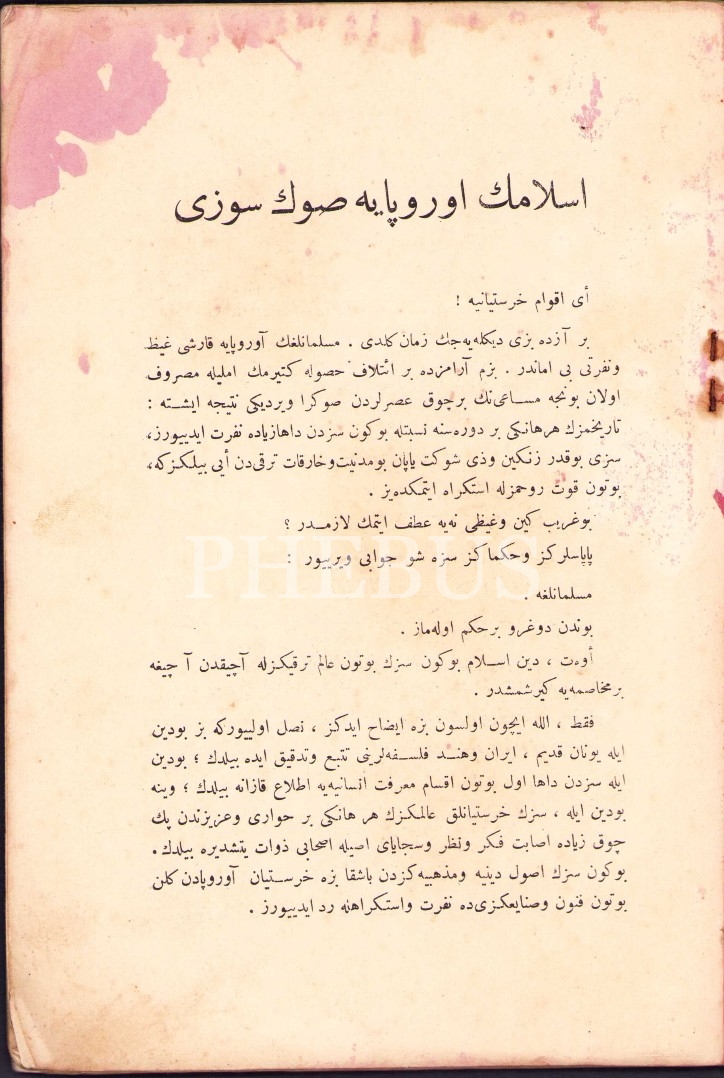 اسلامك اوروپایه صوك سوزی
أی اقوام خرستیانیه !
بر آزده بزی دیكله‌یه‌جك زمان كلدی . مسلمانلغك آوروپایه قارشی غیظ
ونفرتی بی اماندر . بزم آرامزده بر ائتلاف حصوله كتیرمك املیله مصروف
اولان بونجه مساعی‌نك برچوق عصرلردن صوكرا ویردیكی نتیجه ایشته :
تاریخمزك هرهانكی بر دوره‌سنه نسبتله بوكون سزدن داها زیاده نفرت ایدییورز،
سزی بوقدر زنكین وذی شوكت یاپان بومدنیت وخارقات ترقی‌دن أیی بیلكزكه،
بوتون قوت روحمزله استكراه ایتمكده‌یز .
بوغریب كین وغیظی نه‌یه عطف ایتمك لازمدر ؟
پاپاسلركز وحكماكز سزه شو جوابی ویرییور :
مسلمانلغه .
بوندن دوغرو برحكم اوله‌ماز .
أوه‌ت ، دین اسلام بوكون سزك بوتون عالم ترقیكزله آچیقدن آ چیغه
بر مخاصمه‌یه كیرشمشدر .
فقط ، الله ایچون اولسون بزه ایضاح ایدكز ، نصل اولییوركه بز بودین
ایله یونان قدیم ، ایران وهند فلسفه‌لرینی تتبع وتدقیق ایده بیلدك ؛ بودین
ایله سزدن داها اول بوتون اقسام معرفت انسانیه‌یه اطلاع قازانه بیلدك ؛ وینه
بودین ایله ، سزك خرستیانلق عالمكزك هر هانكی بر حواری وعزیزندن پك
چوق زیاده اصابت فكر ونظر وسجایای اصیله اصحابی ذوات یتشدیره بیلدك .
بوكون سزك اصول دینیه ومذهبیه‌كزدن باشقا بزه خرستیان آوروپادن كلن
بوتون فنون وصنایعكزی‌ده نفرت واستكراهله رد ایدییورز .
PHEBUS